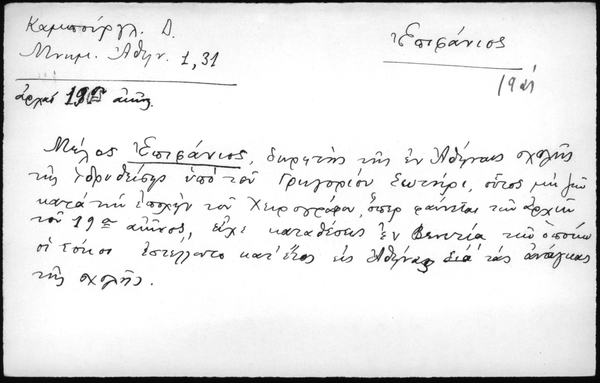 Καμπούρογλ. Δ.
Μνημ. Ἀθην. 1, 31
Ἐπιφάνιος
ἀρχαὶ 19ου αἰῶν.
Μέλος Ἐπιφάνιος, δωρητὴς τῆς ἐν Ἀθήναις σχολῆς
τῆς ἱδρυθείσης ὑπὸ τοῦ Γρηγορίου Σωτήρη, οὗτος μὴ ζῶν
κατὰ τὴν ἐποχὴν τοῦ Χειρογράφου, ὅπερ φαίνεται τῶν ἀρχῶν
τοῦ 19ου αἰῶνος, εἶχε καταθέσεις ἐν Βενετίᾳ τῶν ὁποίων
οἱ τόκοι ἐστέλλοντο κατ' ἔτος εἰς Ἀθήνας διὰ τὰς ἀνάγκας
τῆς σχολῆς.